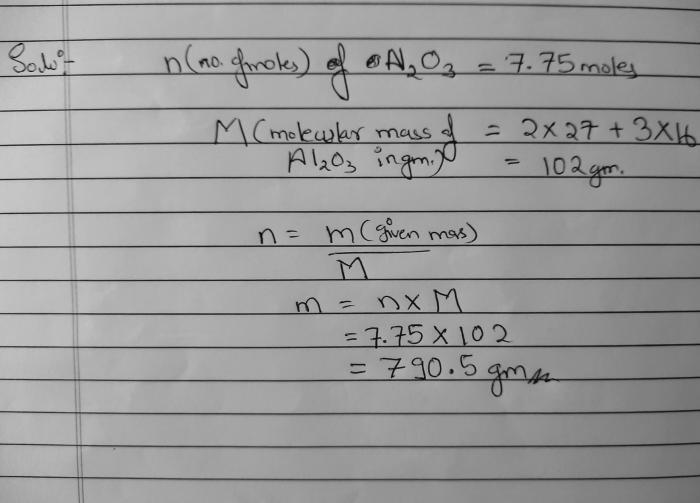 Soln:- n(no. of moles) of Al2O3 = 7.75 moles
M (molecular mass of = 2 x 27 + 3 x 16
Al2O3 in gm.) = 102 gm.
n = m (given mas)
M
m = n x M
= 7.75 x 102
= 790.5 gm